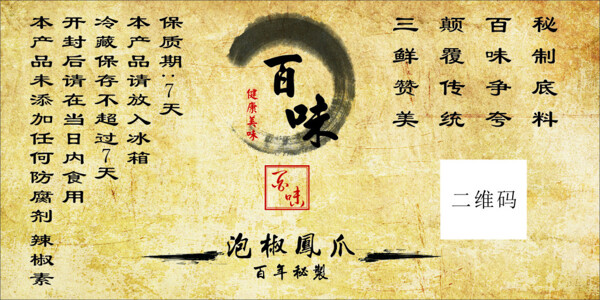 秘制底料
百味争夸
颠覆传统
三鲜赞美
百味
健康美味
百味
泡椒鳳爪
百年秘製
保质期:7天
本产品请放入冰箱
冷藏保存不超过7天
开封后请在当日内食用
本产品未添加任何防腐剂 辣椒素
二维码